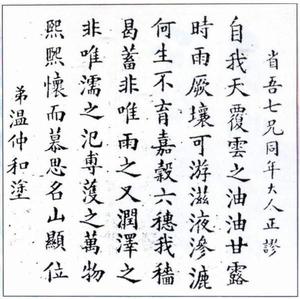 省吾七兄同年大人正謬
自我天覆雲之油油甘露
時雨厥壤可游滋液滲漉
何生不育嘉穀六穗我穡
曷蓄非唯雨之又潤澤之
非唯濡之氾尃濩之萬物
熙熙懷而慕思名山顯位
弟温仲和塗